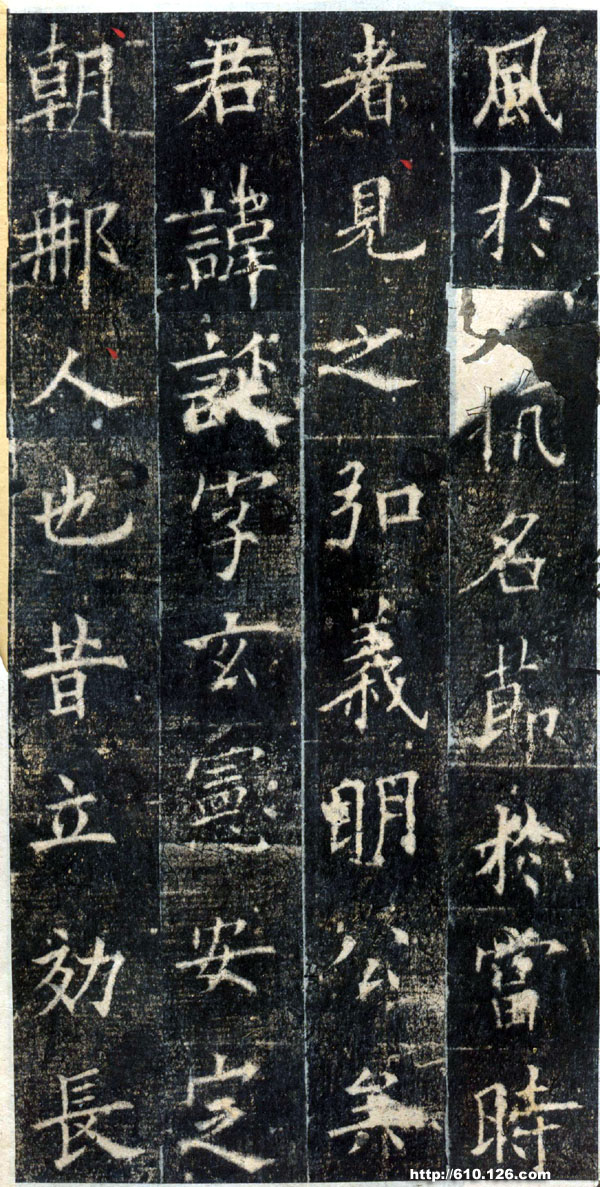 風於杭名節於當時
者見之弘義明公矣
君諱誕字玄憲安定
朝那人也昔立効長
http://610.126.com